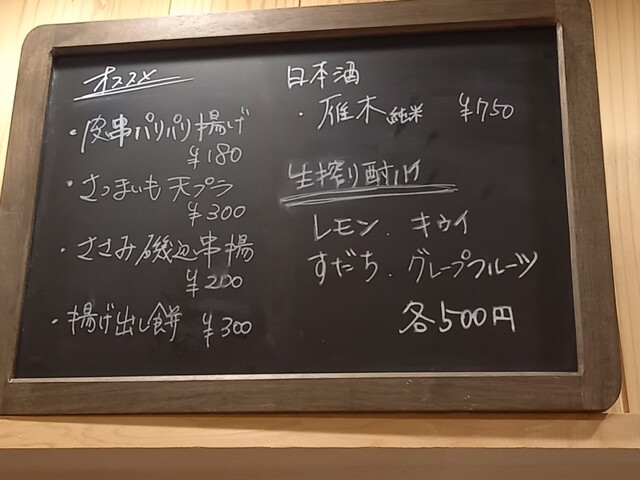 オススメ
・皮串パリパリ揚げ
¥180
・さつまいも天プラ
¥300
・ささみ磯辺串揚
¥200
・揚げ出し餅 ¥300
日本酒
・雁木 純米 ¥750
生搾り酎ハイ
レモン. キウイ
すだち. グレープフルーツ
各500円